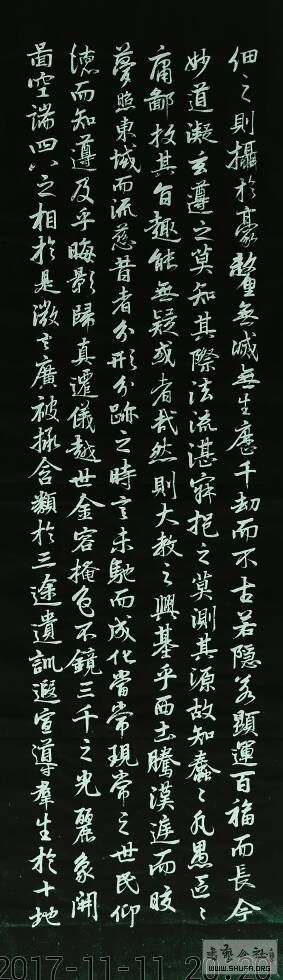 細之則攝於豪釐無滅無生歷千劫而不古若隱若顯運百福而長今
妙道凝玄遵之莫知其際法流湛寂挹之莫測其源故知蠢々凡愚區々
庸鄙投其旨趣能無疑或者哉然則大教之興基乎西土騰漢庭而皎
夢照東域而流慈昔者分形分跡之時言未馳而成化當常現常之世民仰
德而知遵及乎晦影歸真遷儀越世金容掩色不鏡三千之光麗象開
圖空端四八之相於是微言廣被拯含類於三途遺訓遐宣導羣生於十地
2017-11-11
書藝公社
WWW.SHUFA.ORG